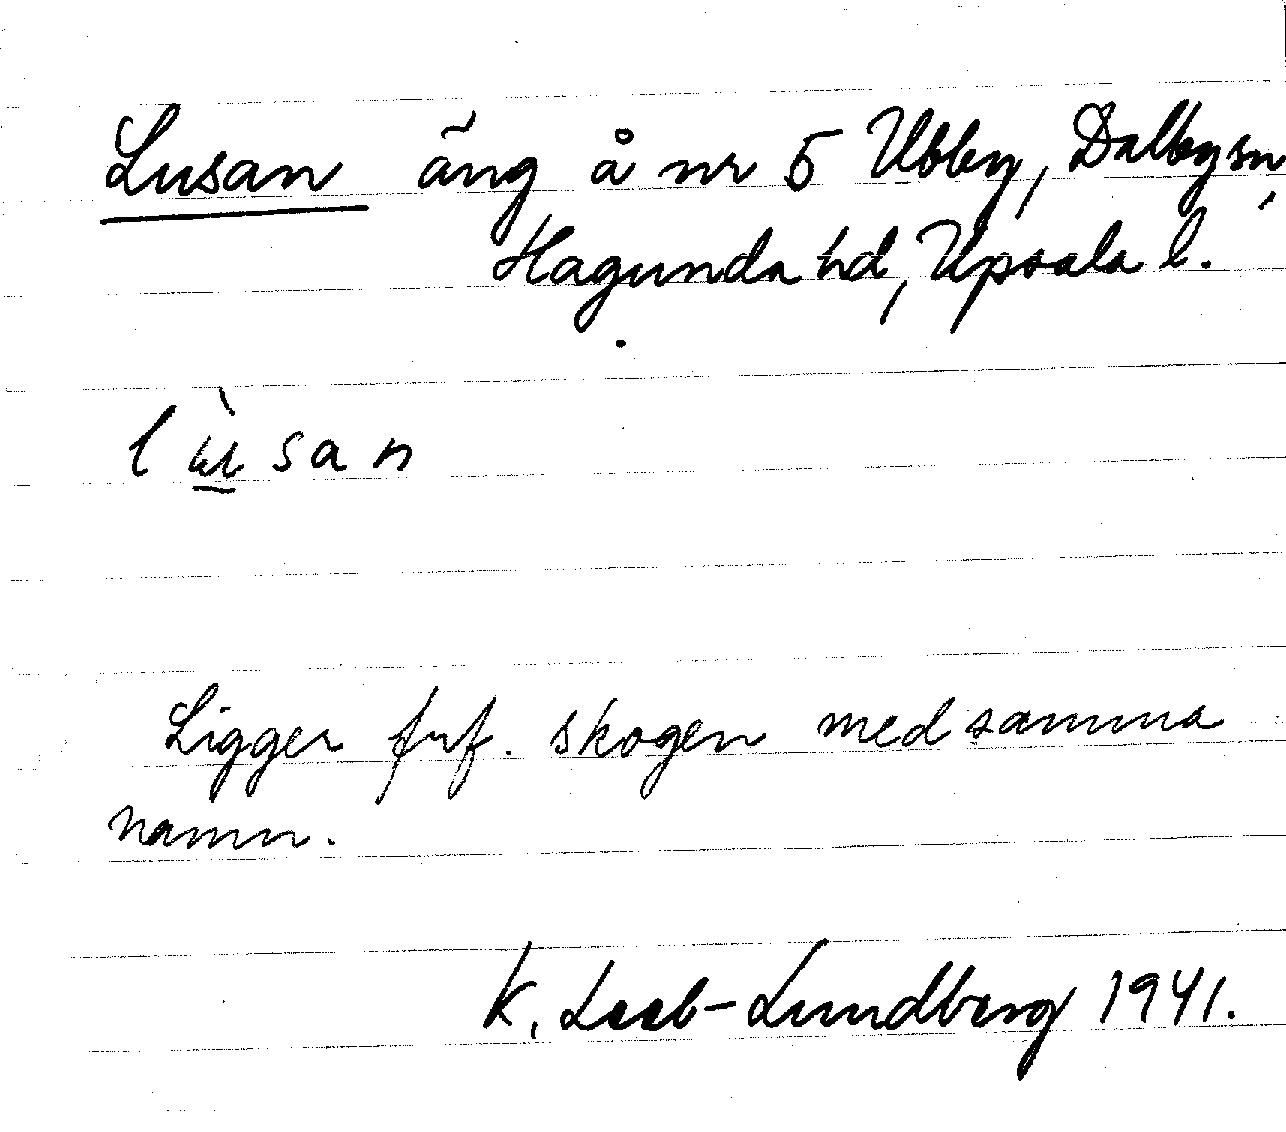 Lusan äng å nr 5 Ubby, Dalby sn,
Hagunda hd, Upsala l.
lùsan
Ligger frf. skogen med samma
namn.
K. Leeb-Lundberg 1941.